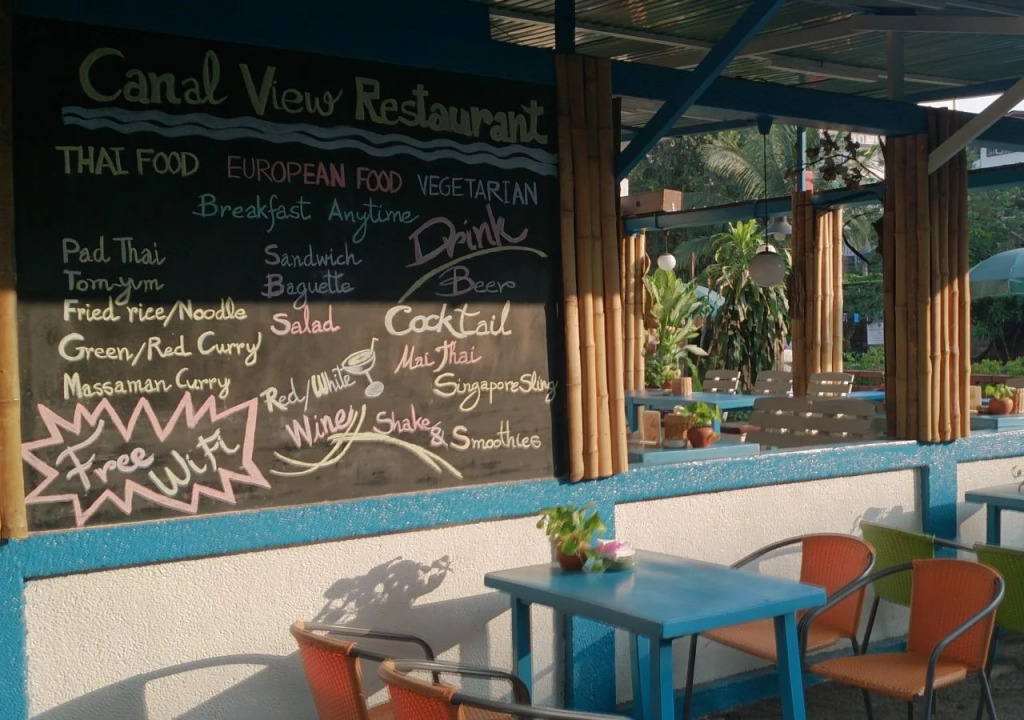 Canal View Restaurant
THAI FOOD EUROPEAN FOOD VEGETARIAN
Breakfast Anytime
Pad Thai
Tom-yum
Fried rice/Noodle
Green/Red Curry
Massaman Curry
Sandwich
Baguette
Salad
Red/White
Wine
Drink
Beer
Cocktail
Mai Thai
Singapore Sling
Shake
& Smoothies
Free
WiFi